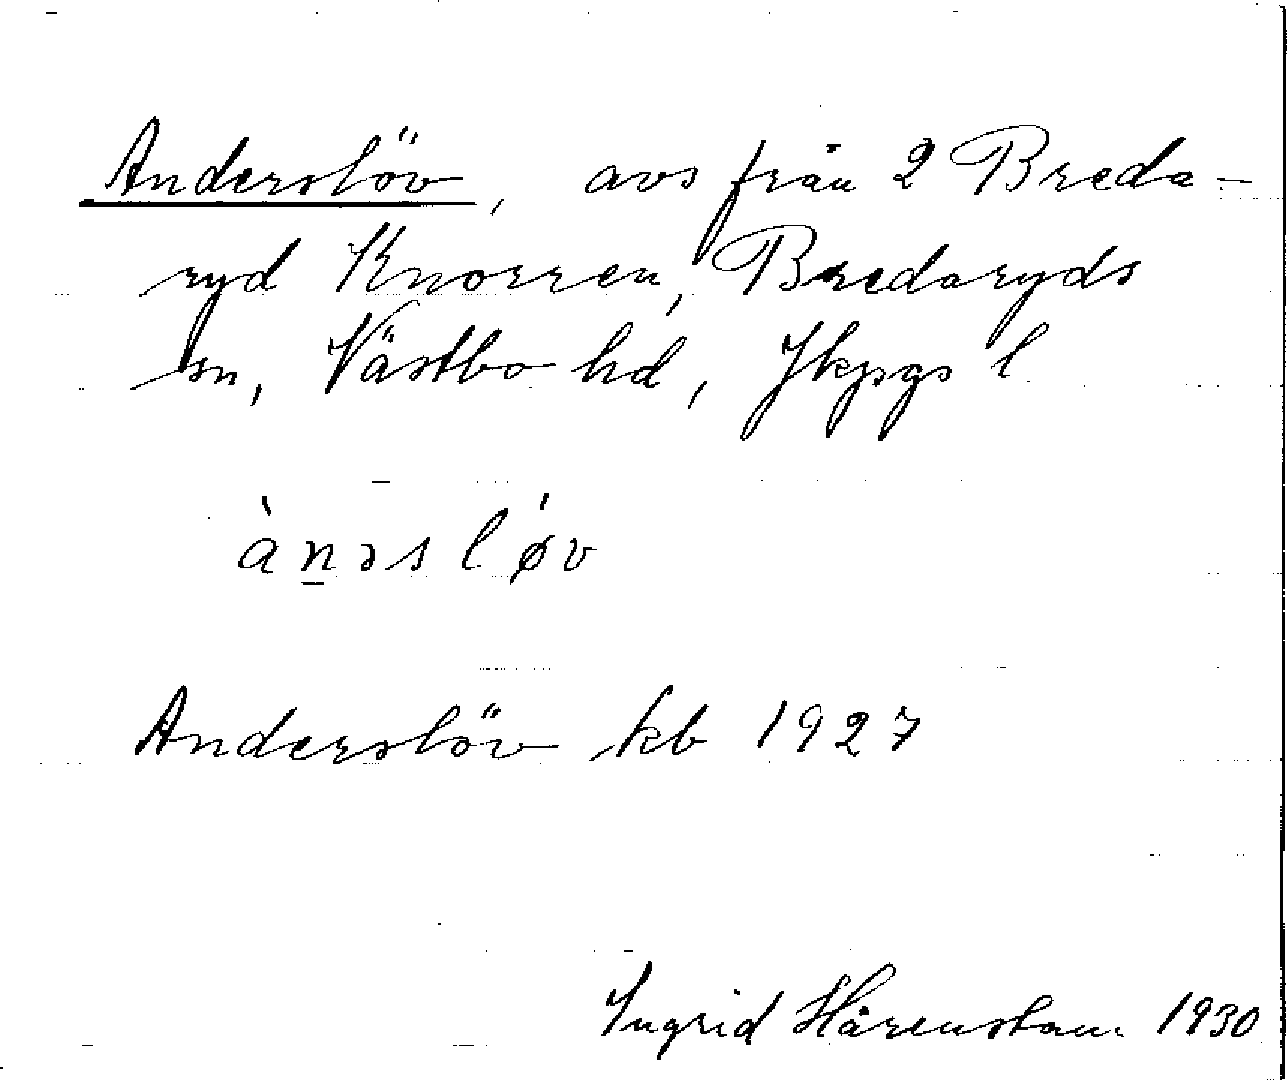 Anderslöv, avs från 2 Breda-
ryd Knorren, Bredaryds
sn, Västbo hd, Jkpgs l
àn̲əsløv́
Anderslöv kb 1927
Ingrid Hårenstam. 1930